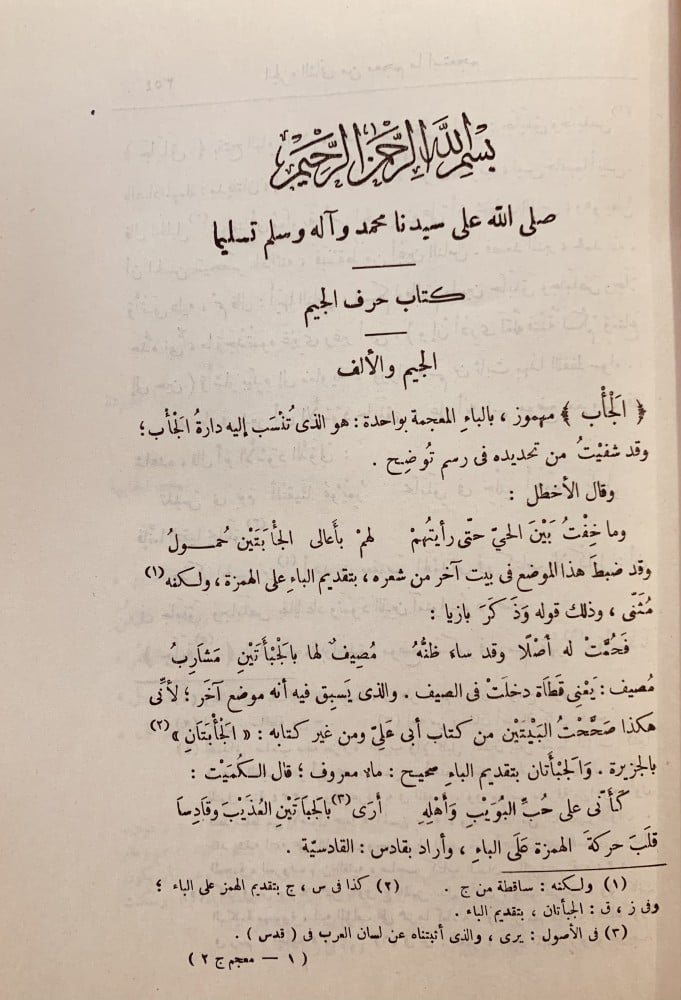 بِسْمِ اللهِ الرَّحْمٰنِ الرَّحِيْمِ
صلى الله على سيدنا محمد وآله وسلم تسليما
كتاب حرف الجيم
الجيم والألف
﴿ الْجَأْب ﴾ مهموز ، بالباءِ المعجمة بواحدة : هو الذى تُنْسَب إليه دارةُ الْجَأْب ؛
وقد شفيْتُ من تحديده فى رسم تُوضِح .
وقال الأخطل :
وما خِفْتُ بَيْنَ الحيّ حتّى رأيتُهُمْ لهمْ بأَعالى الجأْبَتَيْن حُمــولُ
وقد ضبطَ هذا الموضع فى بيت آخر من شعره ، بتقديم الباءِ على الهمزة ، ولكنه (١)
مُثَنّى ، وذلك قوله وَذَكَرَ بازيا :
فَحُمَّتْ له أُصْلًا وقد ساء ظنُّهُ مُصِيفٌ لها بالْجَبْأَتَيْنِ مَشَارِبُ
مُصيف : يَعْنِى قَطَاة دخلَتْ فى الصيف . والذى يَسبِق فيه أنه موضع آخر ؛ لأنّى
هكذا صَحَّحْتُ البَيْتَيْن من كتاب أبى عَلِىّ ومن غير كتابه : « الْجَأْبَتَان » (٢)
بالجزيرة . وَالْجَبْأَتان بتقديم الباءِ صحيح : مالا معروف ؛ قال الـكُمَيْت :
كَأَنّى على حُبِّ البُوَيْبِ وَأَهْلِهِ أَرَى (٣) بالْجَبَاتَيْنِ العُذَيْبَ وقَادِسَا
قلَبَ حركةَ الهمزة عَلَى الباءِ ، وأراد بقادس : القادسيّة .
(١) ولكنه : ساقطة من ج . (٢) كذا فى س ، ج بتقديم الهمز على الباء ؛
وفى ز ، ق : الجبأتان ، بتقديم الباء .
(٣) فى الأصول : يرى ، والذى أثبتناه عن لسان العرب فى ( قدس ) .
( ١ — معجم ج ٢ )